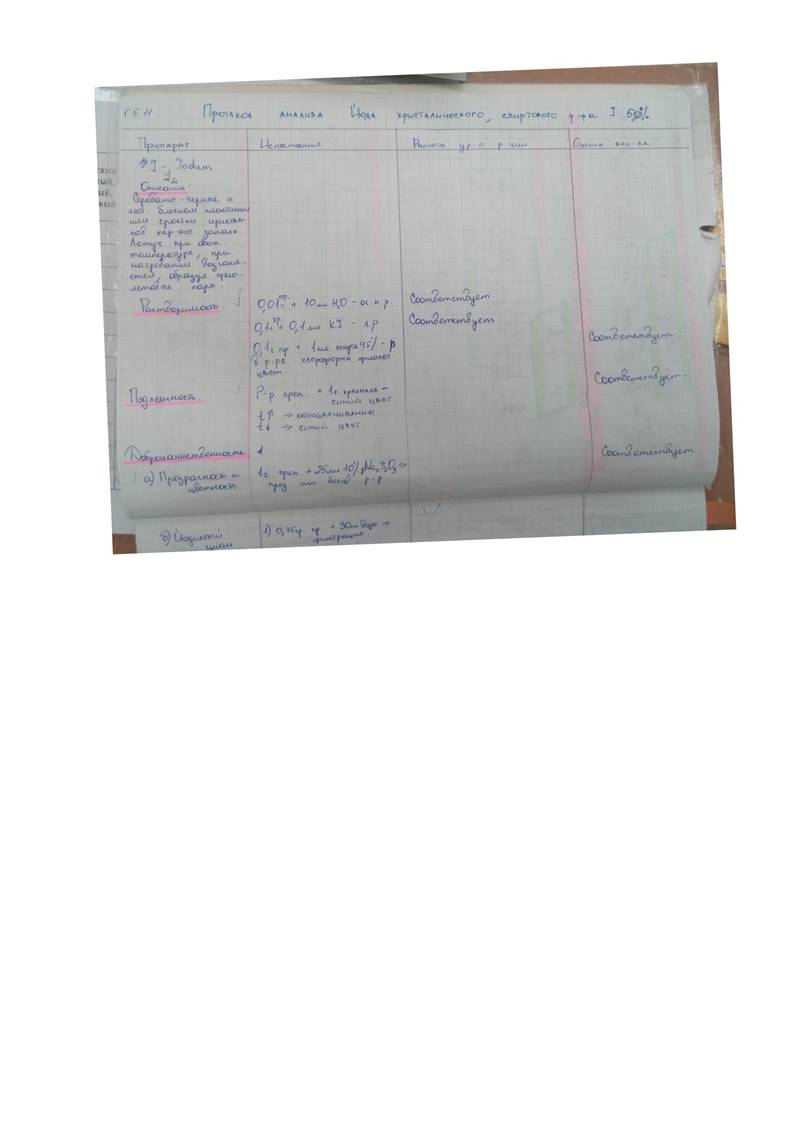 05.11. Протокол анализа Йода кристалического, спиртового р-ра I 5%
Препарат Испытания Расчеты ур-я р-ции Оценка кач-ва
I - Iodum
I₂
Описание:
Серовато-черные с
мет. блеском пластинки
или сростки кристал-
лов хар-ого запаха
Летуч при обык.
температуре, при
нагревании возгоня-
ется, образуя фио-
летовые пары.
Растворимость. 0,01г пр. + 10мл H₂O - оч. н. р. Соответствует
0,1г пр + 0,1мл KI - лр Соответствует
0,1г пр + 1мл спирта 95% - р Соответствует
В р-ре хлороформа фиолет
цвет.
Подлинность. Р-р преп. + 1к. крахмала - Соответствует.
синий цвет
t↑ → обесцвечивание
t↓ → синий цвет
Доброкачественность Соответствует
а) Прозрачность и
цветность
1г преп + 25мл 10% рNa₂S₂O₃ →
проз или бесцв р-р
б) Йодистый
циан
1) 0,75гр пр + 30мл воды →
фильтрация